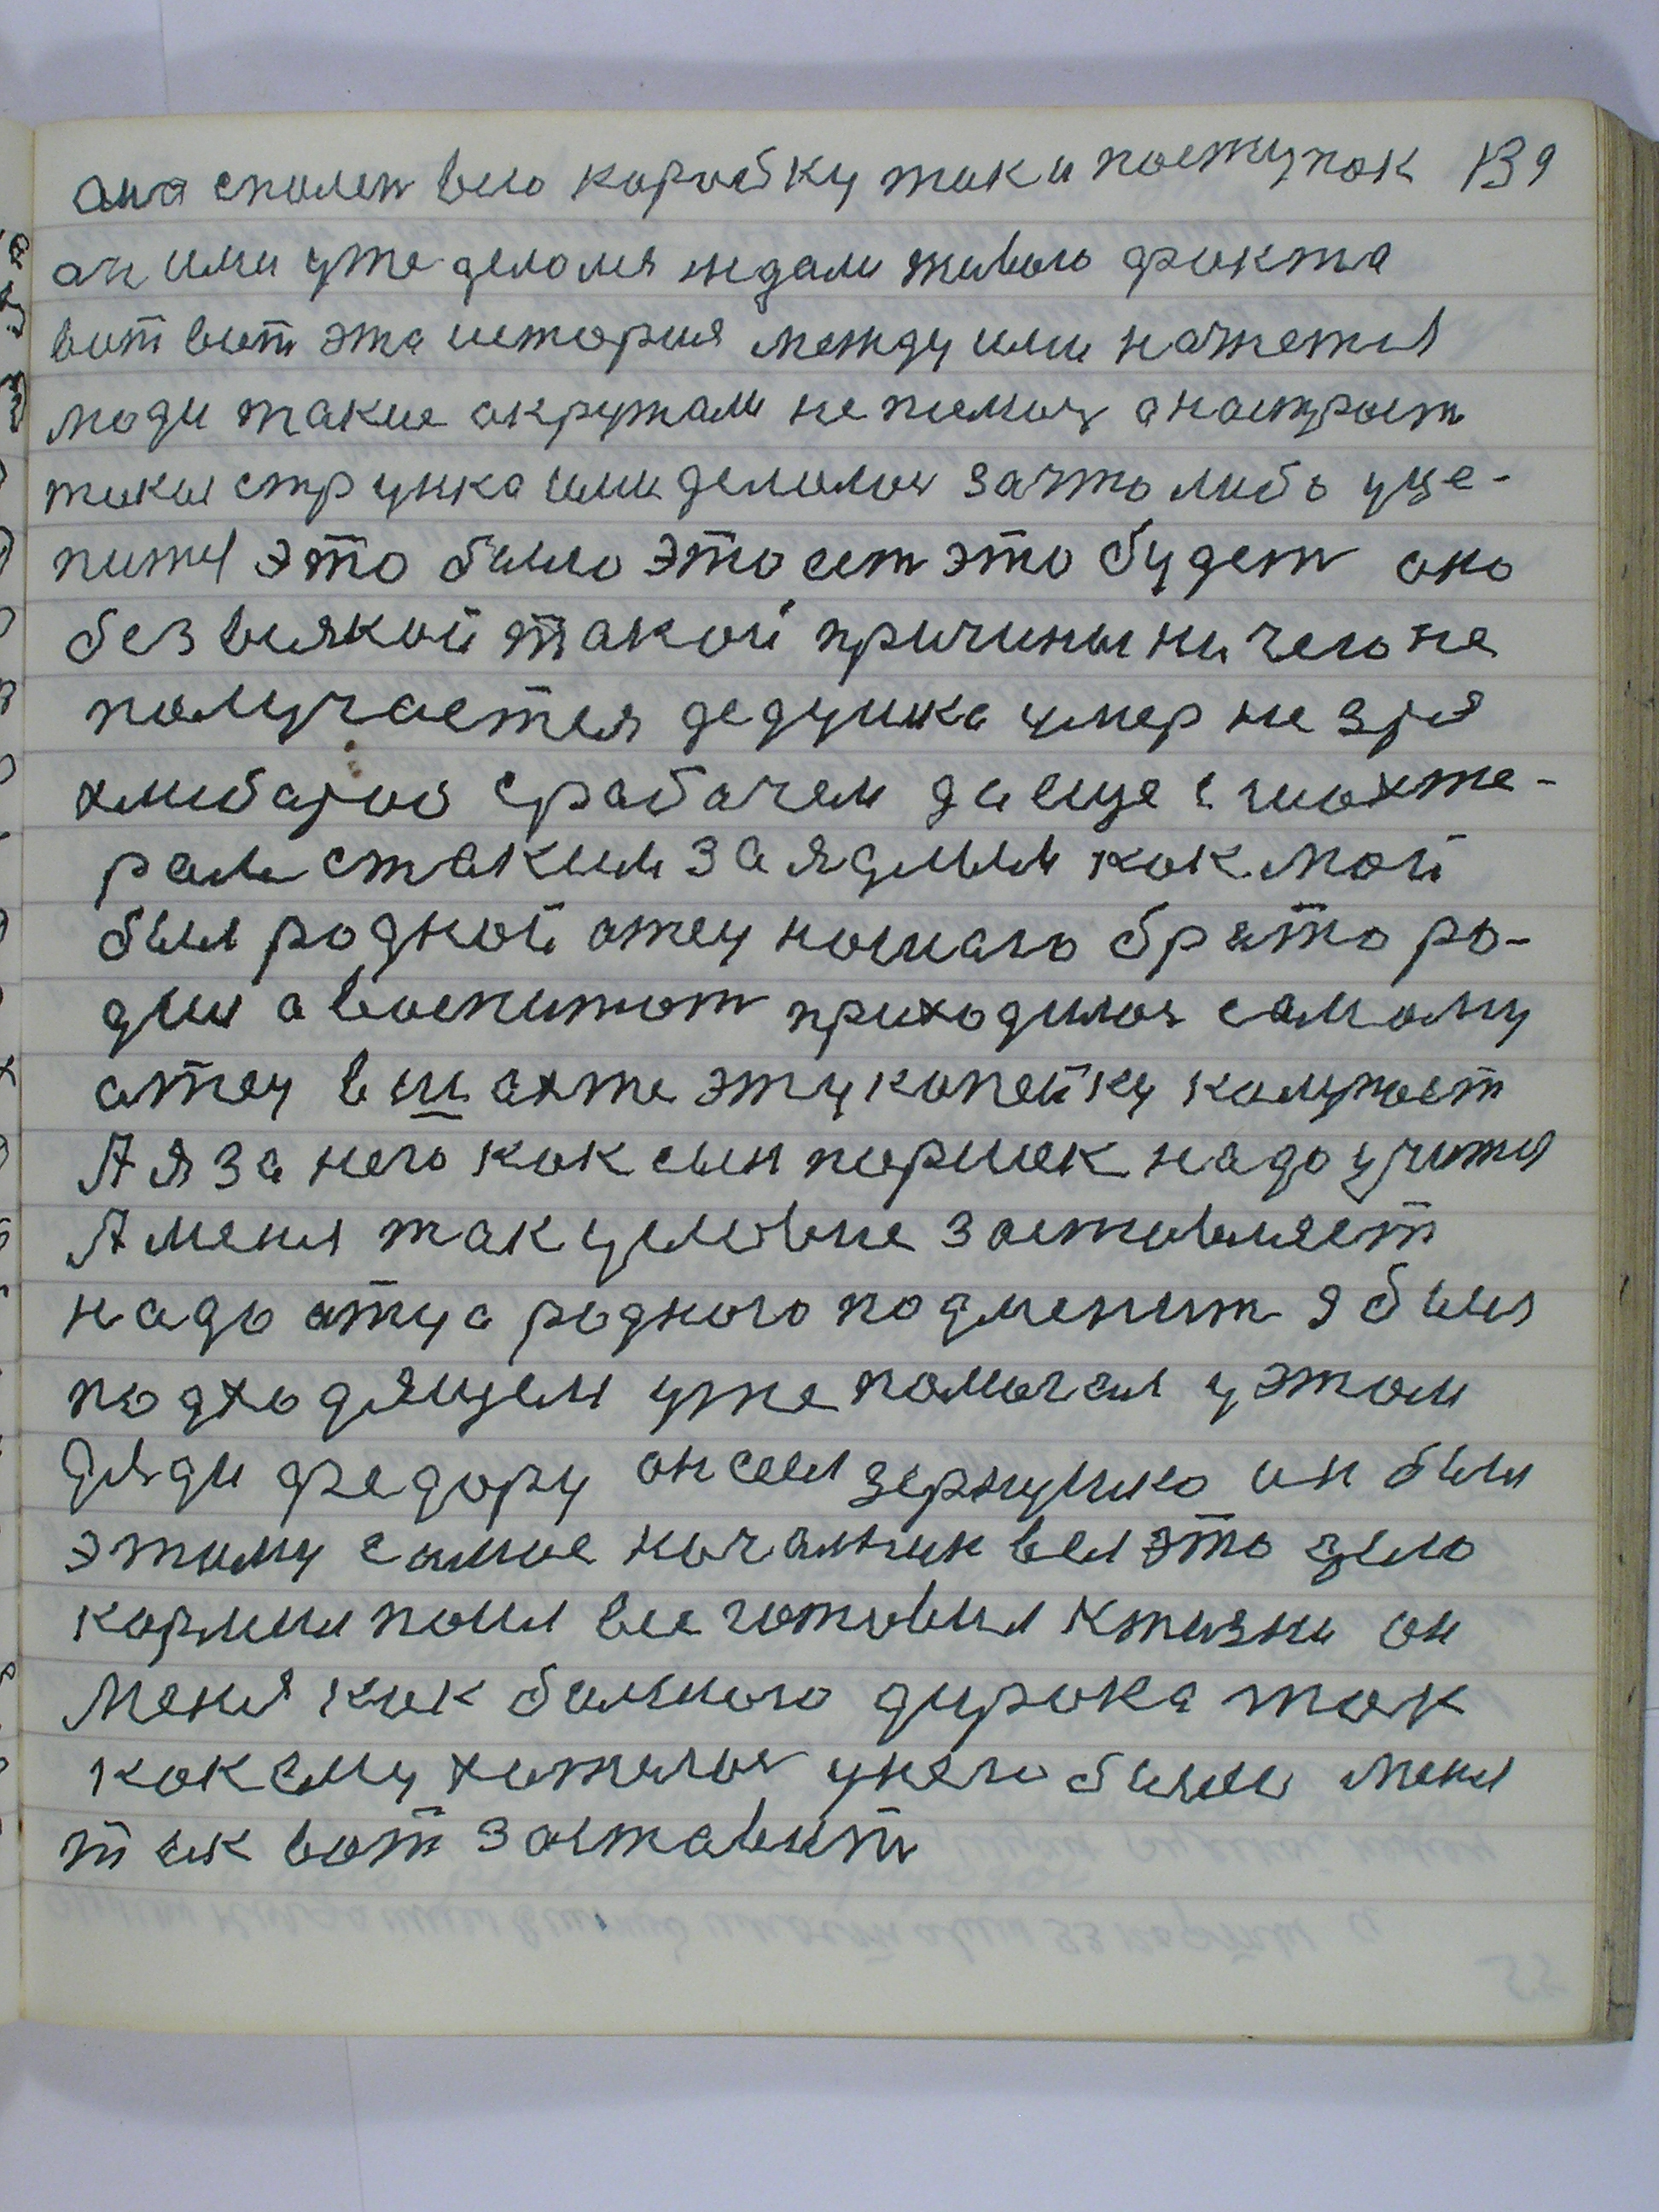 она спалем всю коробку так и поступок 139
он ими уже делался ждали живого факта
вот вот эта история между ими начнется
люди такие окружали не помощ а настроет
такая струнка ими делалась зачто либо уце-
пится это было это ест это будет оно
без всякой такой причины ничего не
получается дедушка умер не зря
хлибароб срабочем да еще с шахте-
рам стаким заядлым как мой
был родной отец нашаго брата ро-
дил а воспитат приходилос самому
отец в шахте эту копейку колупает
А я за него как сын поршек надо учится
А меня так условие заставляет
надо отца родного подменит я был
подходящем уже помогал у этом
дяди федору он сеел зернушко он был
этому самое начальник вел это дело
кормил поил все готовил кжизни он
меня как большого дурака так
как ему хотелос унего было меня
так вот заставит